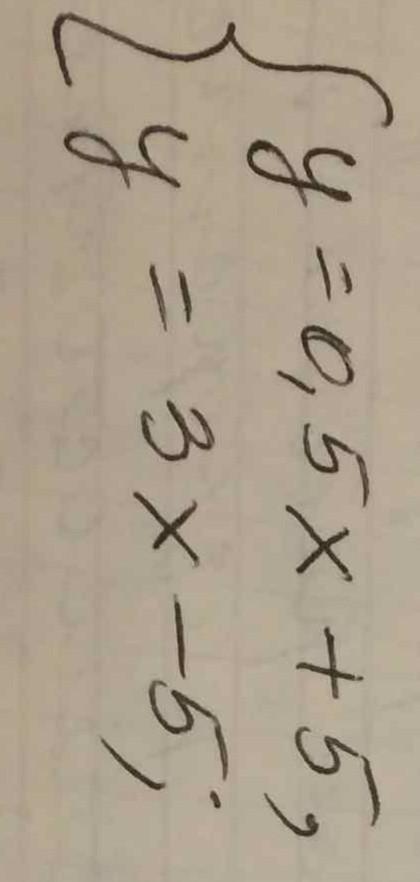 { y = 0,5x + 5,
y = 3x - 5;